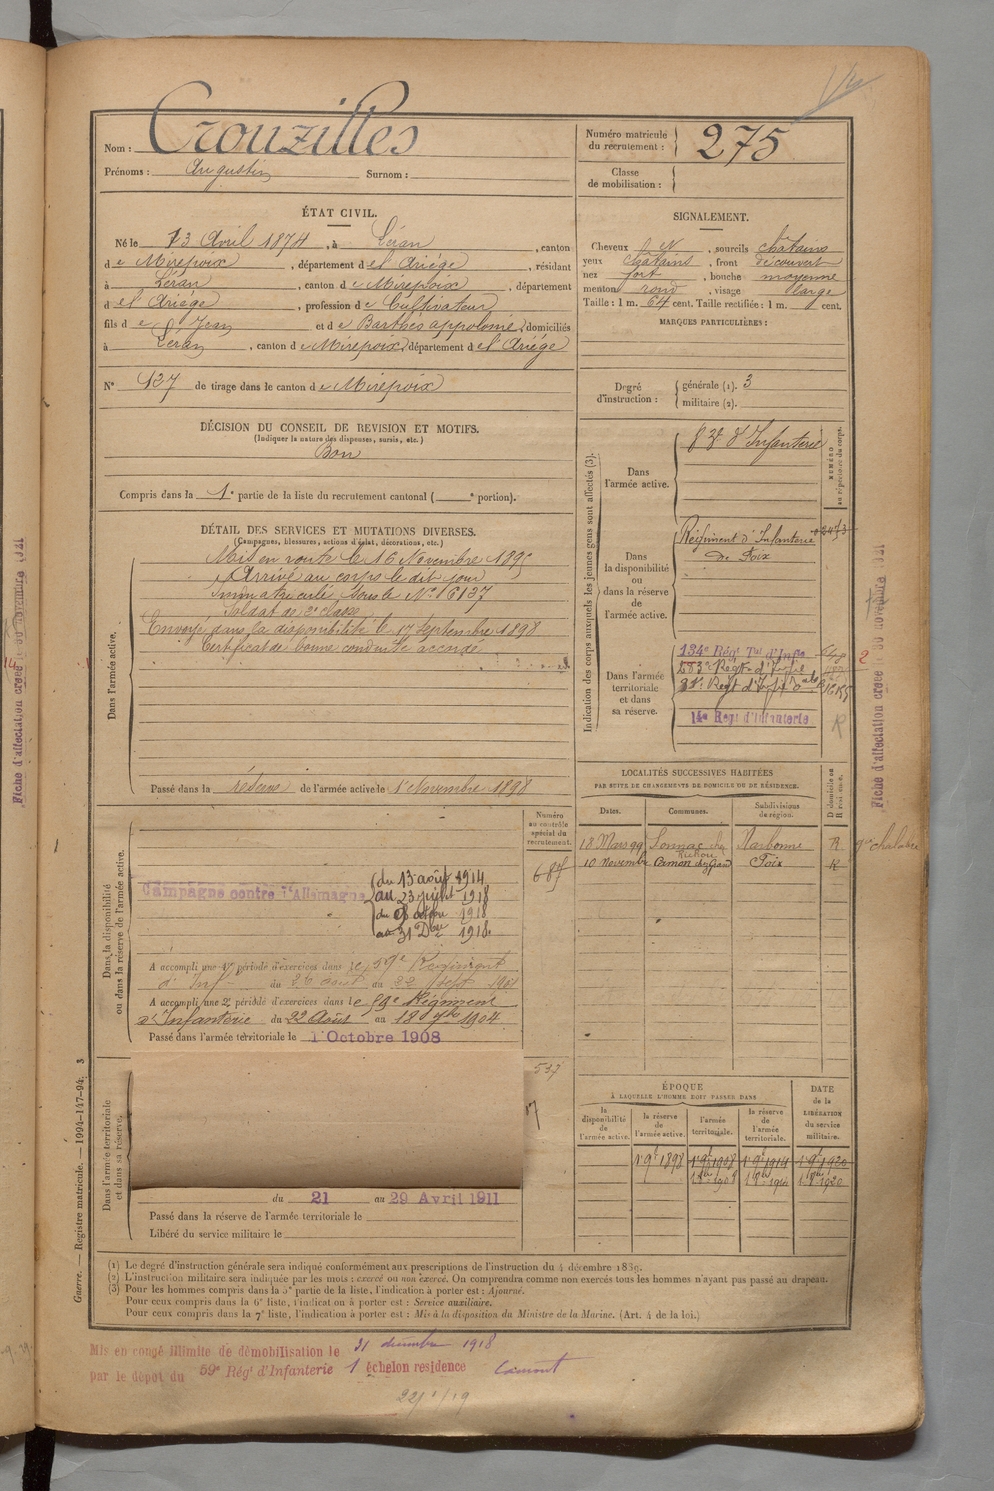 Nom : Crouzilles
Prénoms : Augustin Surnom :
Numéro matricule du recrutement : 275
Classe de mobilisation :
ÉTAT CIVIL.
Né le 13 Avril 1874, à Léran, canton
de Mirepoix, département de l'Ariége, résidant
à Léran, canton de Mirepoix, département
de l'Ariége, profession de Cultivateur
fils de Jean et de Barthés appolonie, domiciliés
à Léran, canton de Mirepoix, département de l'Ariége
N° 137 de tirage dans le canton de Mirepoix
DÉCISION DU CONSEIL DE REVISION ET MOTIFS.
(Indiquer la nature des dispenses, sursis, etc.)
Bon
Compris dans la 1e partie de la liste du recrutement cantonal ( e portion).
DÉTAIL DES SERVICES ET MUTATIONS DIVERSES.
(Campagnes, blessures, actions d'éclat, décorations, etc.)
Dans l'armée active.
Mis en route le 16 Novembre 1895
Arrivé au corps le dit jour
Immatriculé sous le N° 16137
Soldat de 2e classe
Envoyé dans la disponibilité le 17 Septembre 1898
Certificat de bonne conduite accordé
Passé dans la réserve de l'armée active le 1 Novembre 1898
Dans la disponibilité ou dans la réserve de l'armée active.
Numéro au contrôle spécial du recrutement.
687
Campagne contre l'Allemagne
du 13 août 1914
au 23 juillet 1918
du 1918
au 31 Dbre 1918
A accompli une 1re période d'exercices dans le 59e Régiment
d'Inf. du 26 août au 22 sept 1901
A accompli une 2e période d'exercices dans le 59e Régiment
d'Infanterie du 22 Août au 18 7bre 1904
Passé dans l'armée territoriale le 1 Octobre 1908
Dans l'armée territoriale et dans sa réserve.
537
du 21 au 29 Avril 1911
Passé dans la réserve de l'armée territoriale le
Libéré du service militaire le
SIGNALEMENT.
Cheveux , sourcils châtains
yeux châtains, front découvert
nez fort, bouche moyenne
menton rond, visage large
Taille : 1 m. 64 cent. Taille rectifiée : 1 m. cent.
MARQUES PARTICULIÈRES :
Degré d'instruction : générale (1). 3
militaire (2).
Indication des corps auxquels les jeunes gens sont affectés (3).
NUMÉRO au répertoire du corps.
Dans l'armée active.
83e d'Infanterie
Dans la disponibilité ou dans la réserve de l'armée active.
Régiment d'Infanterie
de Foix
Dans l'armée territoriale et dans sa réserve.
134e Régt Tal d'Infie
14e Régt d'Infanterie
R
2
LOCALITÉS SUCCESSIVES HABITÉES
PAR SUITE DE CHANGEMENTS DE DOMICILE OU DE RÉSIDENCE.
Dates. Communes. Subdivisions de région. D domicile ou R résidence.
18 Mars 99 Sonnac Narbonne R
10 Novembre Camon Foix R
ÉPOQUE
À LAQUELLE L'HOMME DOIT PASSER DANS
la disponibilité de l'armée active. la réserve de l'armée active. l'armée territoriale. la réserve de l'armée territoriale.
DATE de la LIBÉRATION du service militaire.
1 9e 1898 1 9e 1908 1 9e 1914 1 9e 1920
(1) Le degré d'instruction générale sera indiqué conformément aux prescriptions de l'instruction du 4 décembre 1889.
(2) L'instruction militaire sera indiquée par les mots : exercé ou non exercé. On comprendra comme non exercés tous les hommes n'ayant pas passé au drapeau.
(3) Pour les hommes compris dans la 5e partie de la liste, l'indication à porter est : Ajourné.
Pour ceux compris dans la 6e liste, l'indication à porter est : Service auxiliaire.
Pour ceux compris dans la 7e liste, l'indication à porter est : Mis à la disposition du Ministre de la Marine. (Art. 4 de la loi.)
Guerre. — Registre matricule. — 1994-147-94. 3
Fiche d'affectation créée le 30 novembre 1921
Fiche d'affectation créée le 30 novembre 1921
Mis en congé illimité de démobilisation le 31 décembre 1918
par le dépôt du 59e Régt d'Infanterie 1 échelon résidence